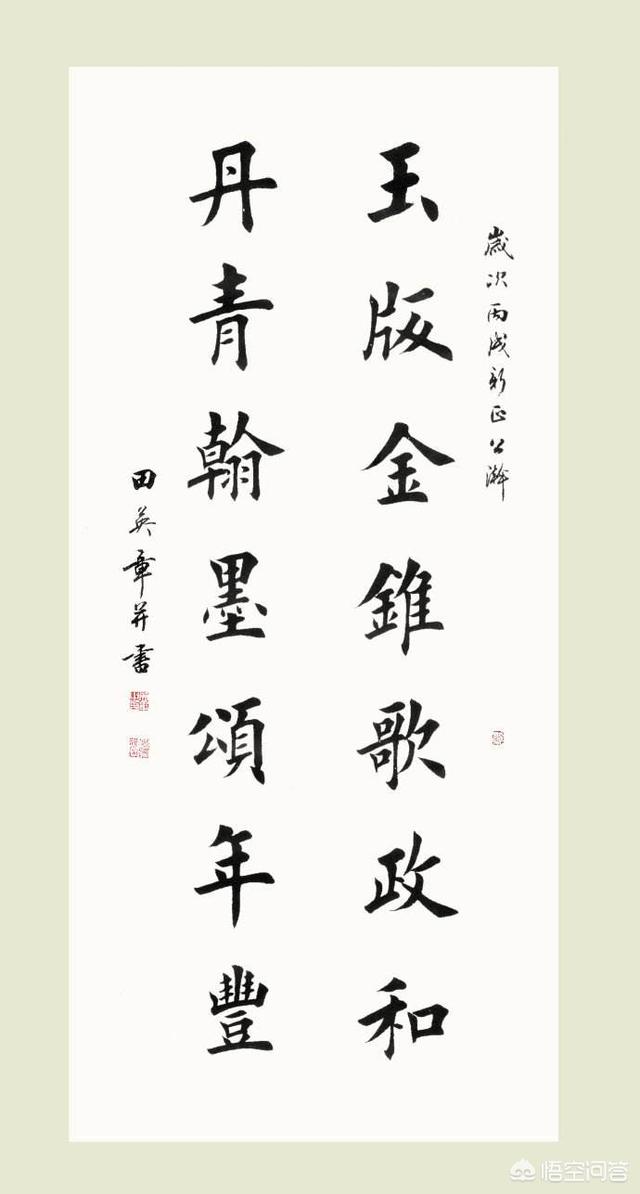 歲次丙戌新正公瀚
玉版金錐歌政和
丹青翰墨頌年豐
田英章并書
悟空问答